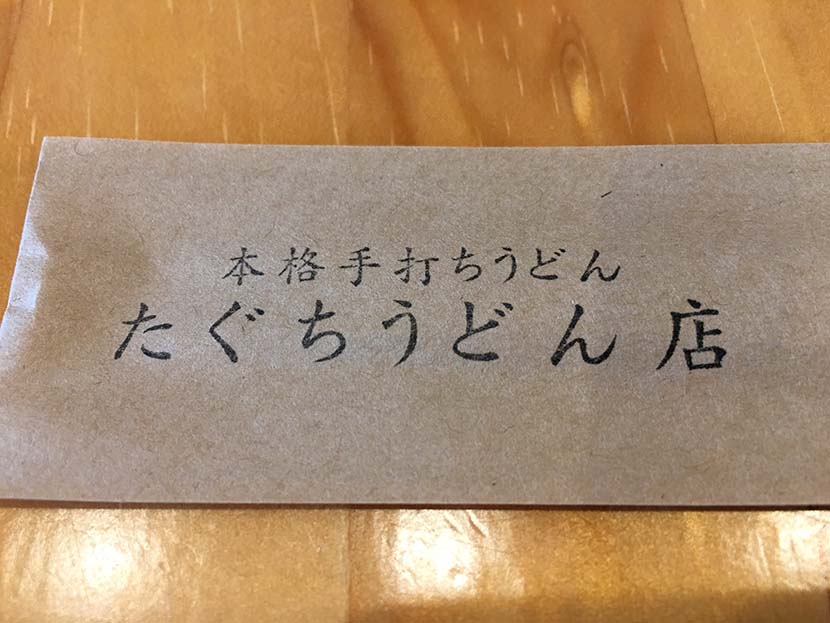 本格手打ちうどん
たぐちうどん店